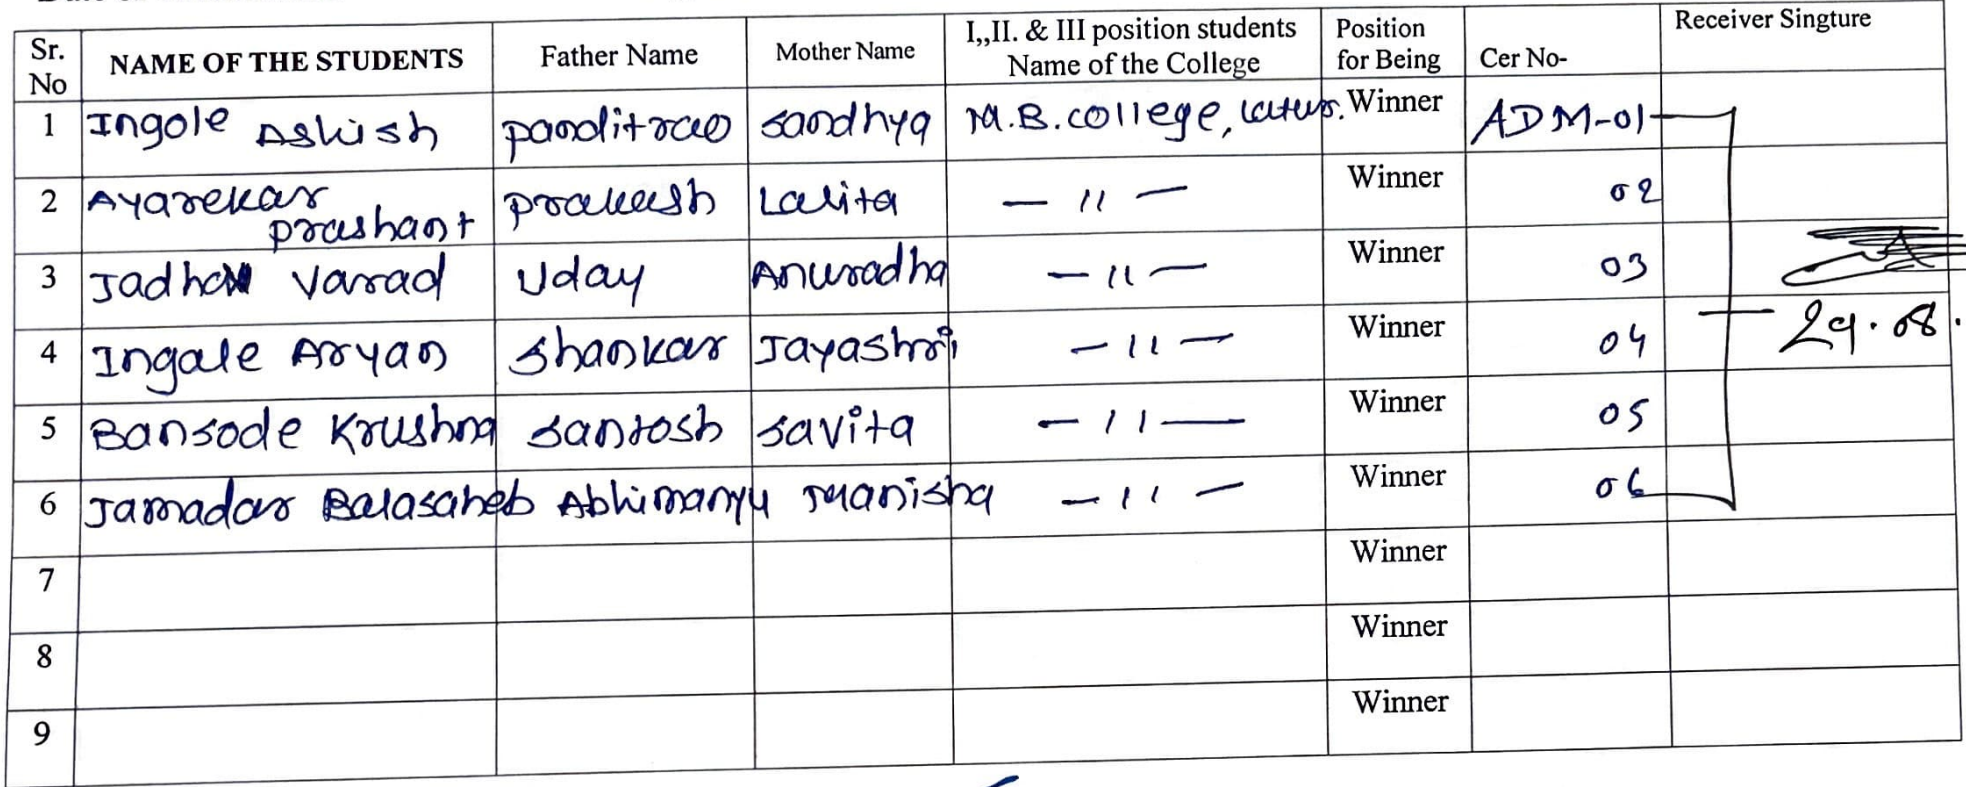 Sr. No NAME OF THE STUDENTS Father Name Mother Name I,,II. & III position students Name of the College Position for Being Cer No- Receiver Singture
1 Ingole Ashish panditrao sandhya M.B.college, Latur. Winner ADM-01
2 Ayarekar prashant prakash Lalita — 11 — Winner 02
3 Jadhav Varad Uday Anuradha — 11 — Winner 03
4 Ingale Aryan Shankar Jayashri — 11 — Winner 04
29.08.
5 Bansode Krushna Santosh Savita — 11 — Winner 05
6 Jamadar Balasaheb Abhimanyu Manisha — 11 — Winner 06
7 Winner
8 Winner
9 Winner